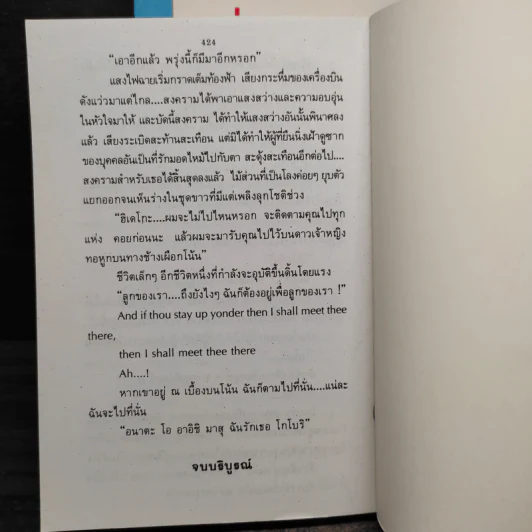 ๔๒๔
“เอาอีกแล้ว พรุ่งนี้ก็มีมาอีกหรอก”
แสงไฟฉายเริ่มกราดเต็มท้องฟ้า เสียงกระหึ่มของเครื่องบิน
ดังแว่วมาแต่ไกล....สงครามได้พาเอาแสงสว่างและความอบอุ่น
ในหัวใจมาให้ และบัดนี้สงคราม ได้ทำให้แสงสว่างอันนั้นพินาศลง
แล้ว เสียงระเบิดสะท้านสะเทือน แต่มิได้ทำให้ผู้ที่ยืนนิ่งเฝ้าดูซาก
ของบุคคลอันเป็นที่รักมอดไหม้ไปกับตา สะดุ้งสะเทือนอีกต่อไป....
สงครามสำหรับเธอได้สิ้นสุดลงแล้ว ไม้ส่วนที่เป็นโลงค่อยๆ ยุบตัว
แยกออกจนเห็นร่างในชุดขาวที่มีแต่เพลิงลุกโชติช่วง
“ฮิเดโกะ....ผมจะไม่ไปไหนหรอก จะติดตามคุณไปทุก
แห่ง คอยก่อนนะ แล้วผมจะมารับคุณไปไว้บนดาวเจ้าหญิง
ทอหูกบนทางช้างเผือกโน้น”
ชีวิตเล็กๆ อีกชีวิตหนึ่งที่กำลังจะอุบัติขึ้นดิ้นโดยแรง
“ลูกของเรา....ถึงยังไงๆ ฉันก็ต้องอยู่เพื่อลูกของเรา !”
And if thou stay up yonder then I shall meet thee
there,
then I shall meet thee there
Ah....!
หากเขาอยู่ ณ เบื้องบนโน้น ฉันก็ตามไปที่นั่น....แน่ละ
ฉันจะไปที่นั่น
“อนาตะ โอ อาอิชิ มาสุ ฉันรักเธอ โกโบริ”
จบบริบูรณ์